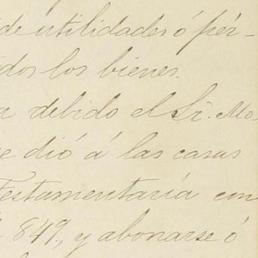 de utilidades ó pér-
dos los bienes.
debido el Sr. Mo
e dió á las casas
Testamentaría con
849, y abonarse ó